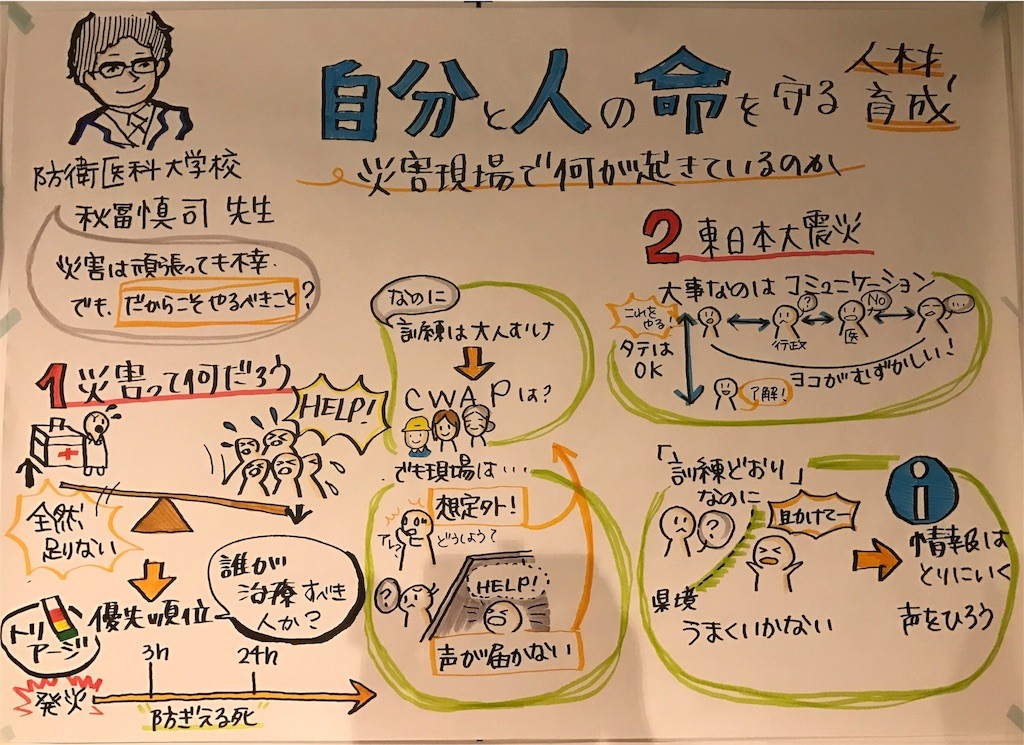 自分と人の命を守る人材育成
災害現場で何が起きているのか
防衛医科大学校
秋冨慎司 先生
災害は頑張っても不幸.
でも、だからこそやるべきこと?
1 災害って何だろう
HELP!
全然
足りない
優先順位
誰が
治療すべき
人か?
トリ
アージ
3h
24h
発災
"防ぎえる死"
なのに
訓練は大人むけ
CWAPは?
でも現場は・・・
想定外!
アレ?
どうしよう
?
HELP!
声が届かない
2 東日本大震災
大事なのは コミュニケーション
これを
やる!
タテは
OK
?
行政
No
医
ヨコがむずかしい!
了解!
「訓練どおり」
なのに
?
助けてー
県境
うまくいかない
i
情報は
とりにいく
声をひろう